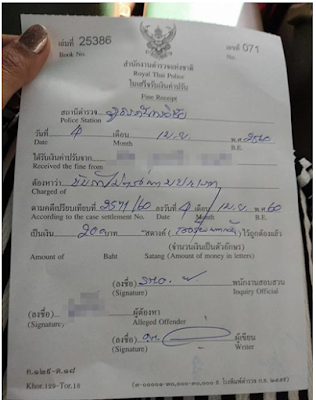 เล่มที่ 25386 เลขที่ 071
Book No.
สำนักงานตำรวจแห่งชาติ
Royal Thai Police
ใบเสร็จรับเงินค่าปรับ
Fine Receipt
สถานีตำรวจ
Police Station
วันที่ 4 เดือน เม.ย. พ.ศ. 2560
Date Month B.E.
ได้รับเงินค่าปรับจาก
Received the fine from
ต้องหาว่า
Charged of
ตามคดีเปรียบเทียบที่ 2571/60 ลงวันที่ 4 เดือน เม.ย. พ.ศ. 60
According to the case settlement No. Date Month B.E.
เป็นเงิน 200 บาท สตางค์ ( ) ไว้ถูกต้องแล้ว
(จำนวนเงินเป็นตัวอักษร)
Amount of Baht Satang (Amount of money in letters)
(ลงชื่อ) พนักงานสอบสวน
(Signature) Inquiry Official
(ลงชื่อ) ผู้ต้องหา
(Signature) Alleged Offender
(ลงชื่อ) ผู้เขียน
(Signature) Writer
ค.๑๒๕-ต.๑๘
Khor.125-Tor.18